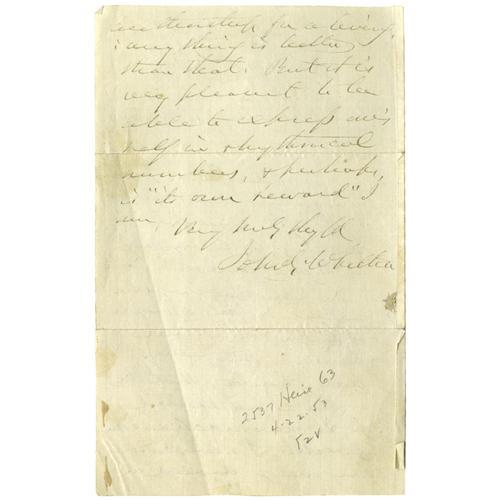 authorship for a living;
anything is better
than that. But it is
very pleasant to be
able to express one's
self in rhythmical
numbers, & perhaps,
is "its own reward" I
am,
Very truly thy fd
John G. Whittier
2537 Heise 63
4-22-53